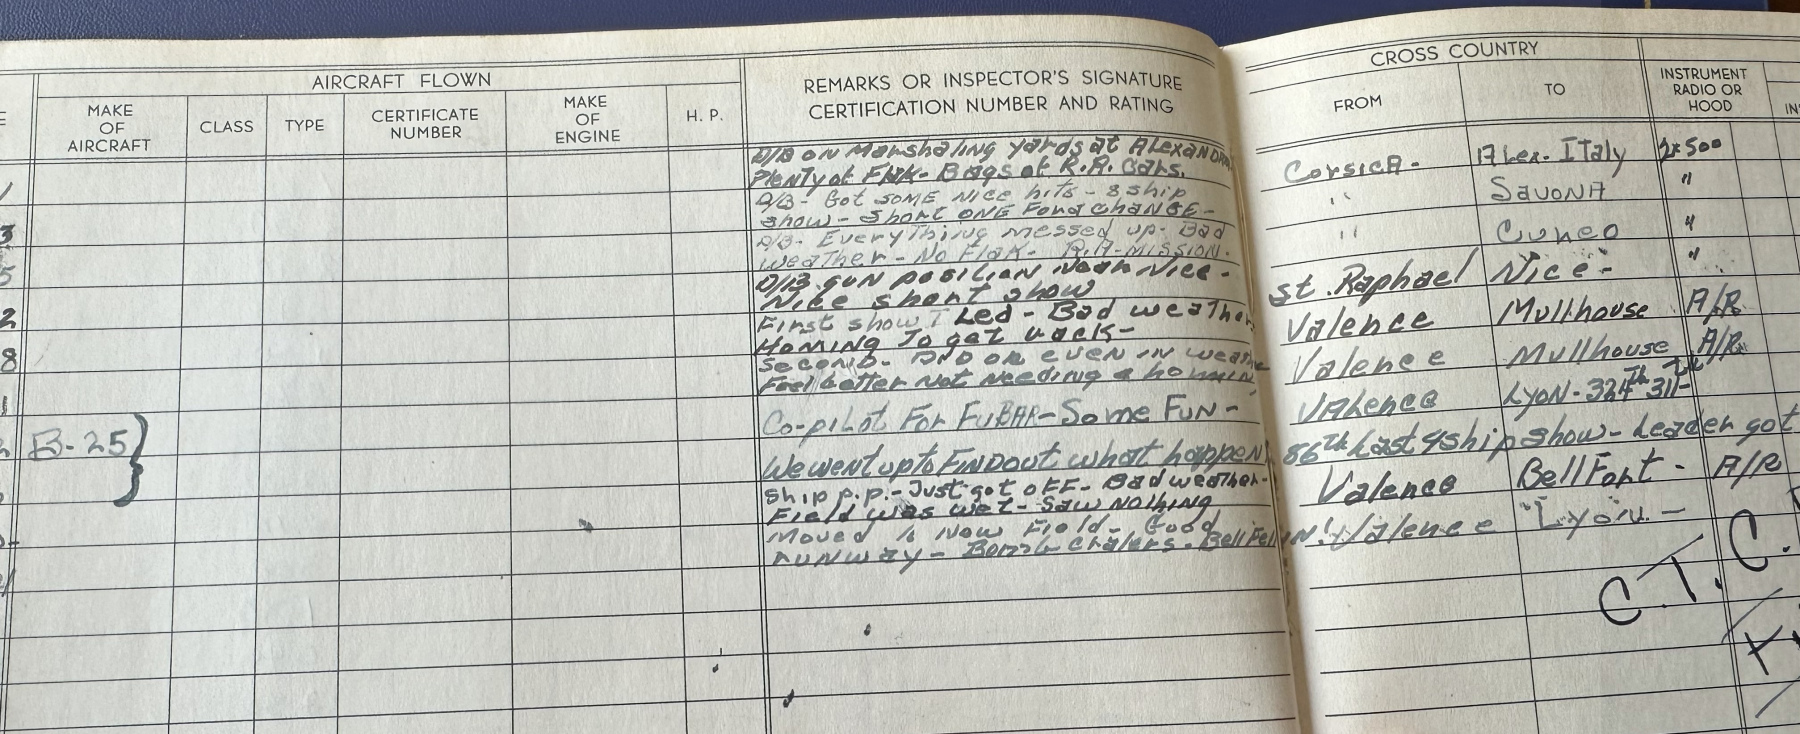 AIRCRAFT FLOWN
MAKE OF AIRCRAFT
CLASS
TYPE
CERTIFICATE NUMBER
MAKE OF ENGINE
H. P.
REMARKS OR INSPECTOR'S SIGNATURE
CERTIFICATION NUMBER AND RATING
CROSS COUNTRY
FROM
TO
INSTRUMENT RADIO OR HOOD
D/B on Marshaling yards at Alexandria
Plenty of Flak - Bags of R.R. Cars.
Corsica - Alex. Italy 2x500
D/B - Got some nice hits - 8 ship
show - short one Ford change -
" Savona "
D/B - Everything messed up - Bad
weather - No Flak - R.R. Mission.
" Cuneo "
D/B gun position Near Nice -
Nice short show
St. Raphael Nice - "
First show I Led - Bad weather
Homing To get back -
Valence Mullhouse A/R
Second - Did OK even in weather
Feel better not needing a homing
Valence Mullhouse A/R
Co-pilot For FUBAR - Some Fun -
Valence Lyon - 324th 31
B-25 }
We went up to Find out what happen
86th Last 4 ship show - Leader got
ship p.p. - Just got off - Bad weather -
Field was wet - Saw nothing
Valence Bellfort - A/R
Moved to New Field - Good
runway -
Valence Lyon -
C.T.C.